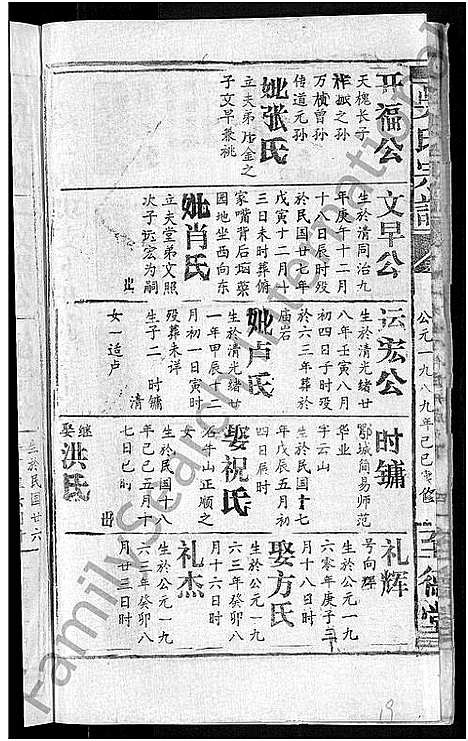 吴氏宗谱
公元一九八九年己巳
至德堂
开福公
天槐长子
祚振之孙
万楨曾孙
传道元孙
妣张氏
立夫弟居金之
子文早兼祧
文早公
生於清同治九
年庚午十二月
十八日辰时殁
於民国廿七年
戊寅十二月十
三日未时葬俯
家嘴背后
园地坐西向东
妣肖氏
立夫堂弟文照
次子运宏为嗣
出
运宏公
生於清光绪廿
八年壬寅八月
初四日子时殁
於六三年葬
庙岩
妣卢氏
生於清光绪廿
一年甲辰十二
月初一日寅时
殁葬未详
生子二 时镛
清
女一适卢
时镛
鄂城简易师范
华业
字云山
生於民国十七
年戊辰五月初
四日辰时
娶祝氏
石牛山正顺之
女
生於民国十八
年己巳五月十
七日巳时
继娶洪氏
出
礼辉
号向辉
生於公元一九
六零年庚子三
月十八日时
娶方氏
生於公元一九
六三年癸卯八
月十六日时
礼杰
生於公元一九
六三年癸卯八
月廿三日时
生於民国廿六
19
FamilySearch International